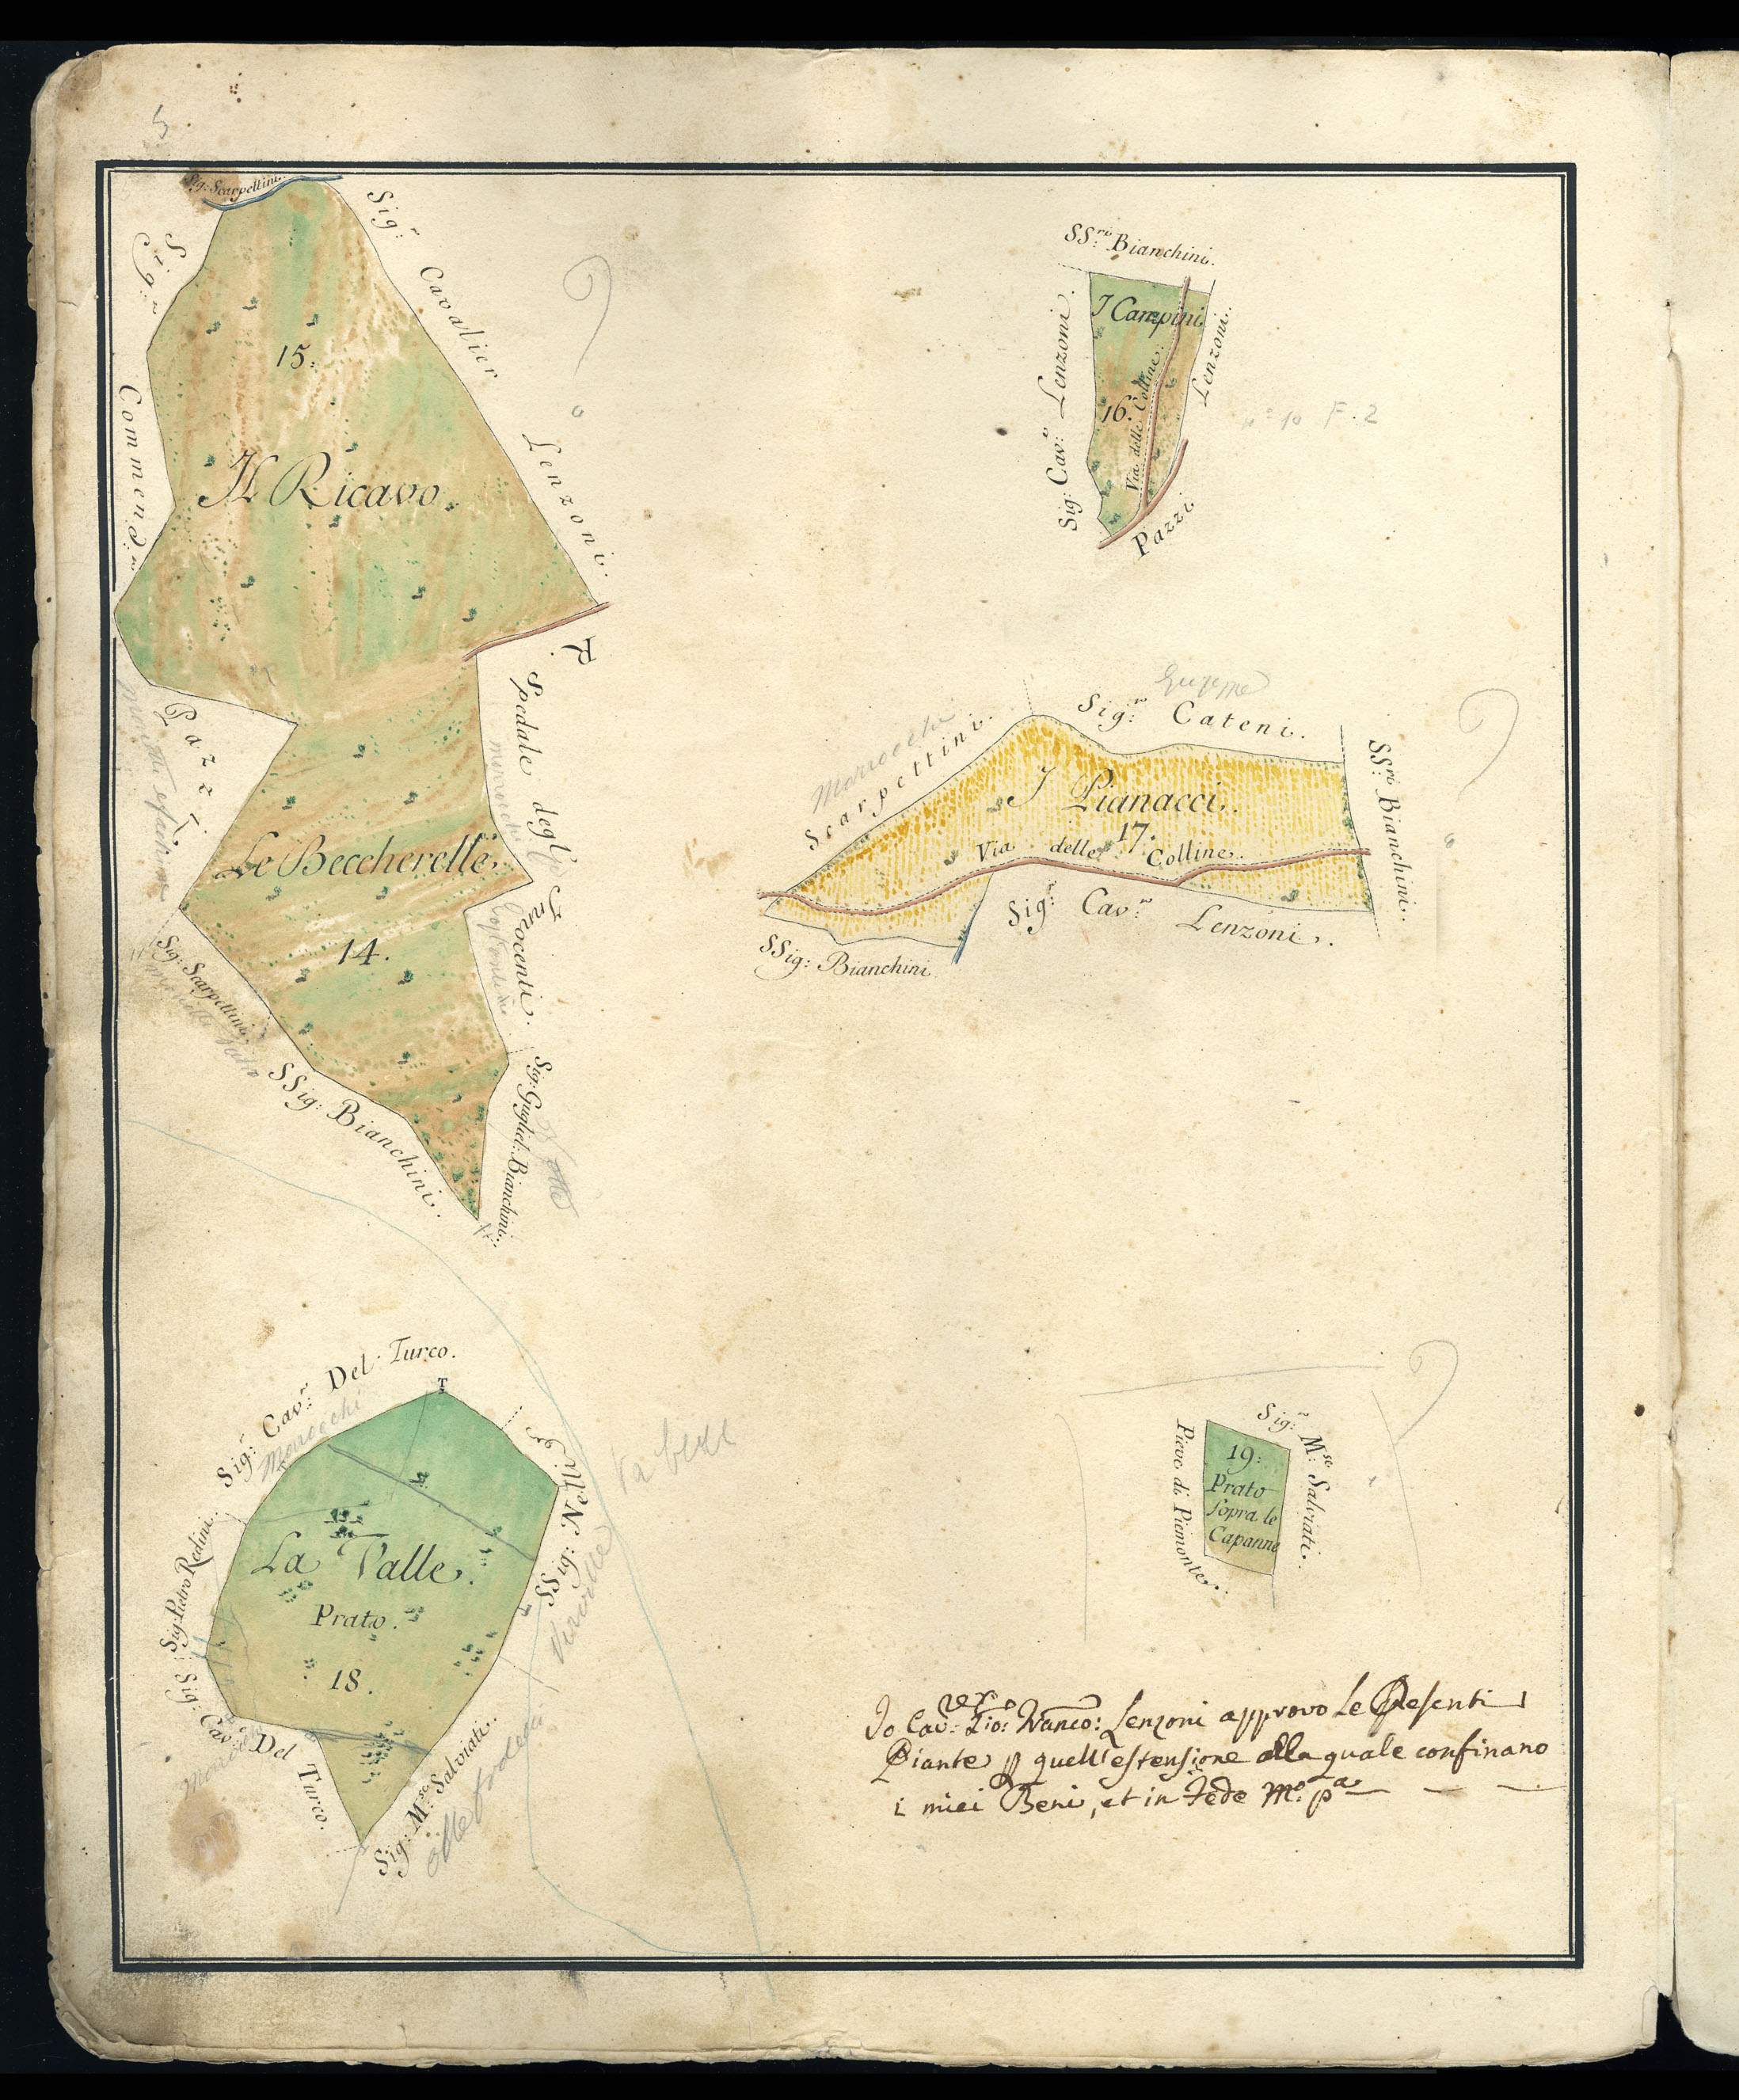 5
Sig: Scarpettini.
Sig:r Commend:re
Sig:r Cavalier Lenzoni.
15.
Il Ricavo.
Pazzi.
R. Spedale degl' Innocenti.
Le Beccherelle.
14.
Sig: Scarpettini.
SSig: Bianchini.
Sig: Gugliel: Bianchini.
SS:ri Bianchini.
I Campini
Sig: Cav:e Lenzoni.
16.
Via delle Colline.
Lenzoni.
Pazzi.
n:o 10 F. 2
Marrocchi
Scarpettini.
Sig:r Cateni.
SS:ri Bianchini.
I Pianacci.
17.
Via delle Colline.
Sig:r Cav:re Lenzoni.
SSig: Bianchini
Sig:r Cav:re Del Turco.
Marrocchi
T
SSig: N:elli
La Valle.
Prato.
18.
Sig: Pietro Redini.
Sig: Cav:e Del Turco.
Sig: M:se Salviati.
Sig:r M:se Salviati.
19.
Prato
Sopra le
Capanne
Pieve di Piemonte.
Io Cav:re Gio: Franco: Lenzoni approvo Le Presenti
Piante p quell'estensione alla quale confinano
i miei Beni, et in Fede M:o p:a